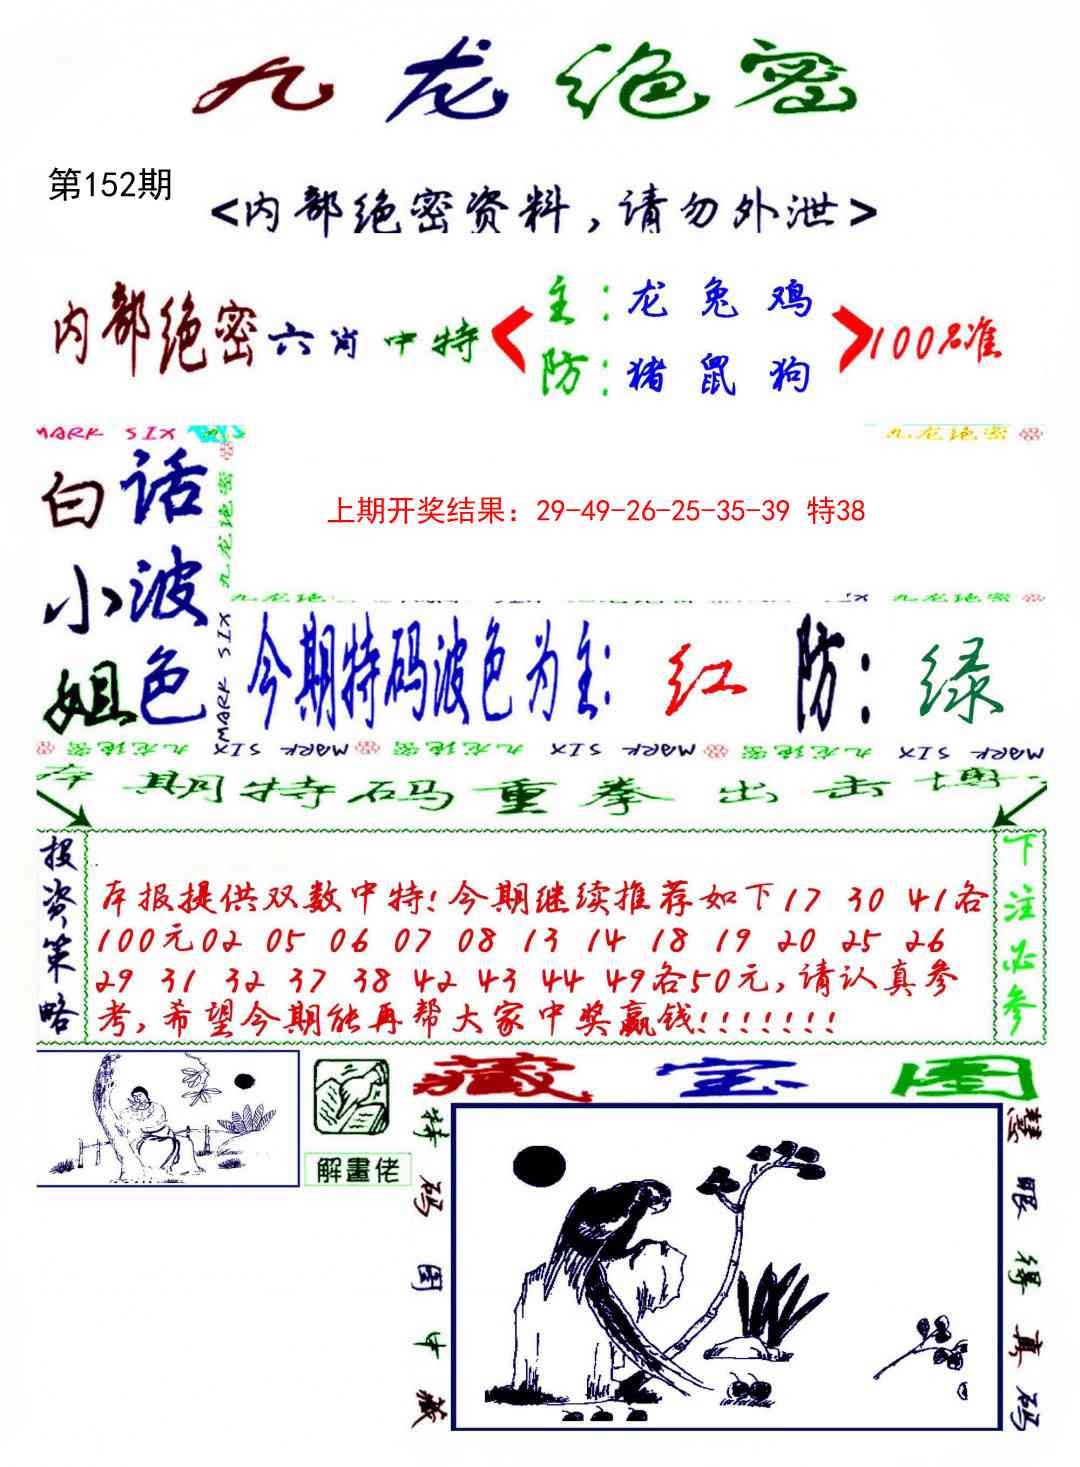 九龙绝密
第152期
<内部绝密资料,请勿外泄>
内部绝密六肖中特
主:龙兔鸡
防:猪鼠狗
100%准
MARK SIX
九龙绝密
九龙绝密
上期开奖结果：29-49-26-25-35-39 特38
白话
小波
姐色
MARK SIX
今期特码波色为主: 红 防: 绿
九龙绝密 MARK SIX MARK SIX 九龙绝密 九龙绝密 MARK SIX MARK SIX 九龙绝密 九龙绝密 MARK SIX MARK SIX
本期特码重拳出击博
投资策略
本报提供双数中特!今期继续推荐如下17 30 41各
100元02 05 06 07 08 13 14 18 19 20 25 26
29 31 32 37 38 42 43 44 49各50元,请认真参
考,希望今期能再帮大家中奖赢钱!!!!!!!
下注必参
解畫佬
藏宝图
特码图中藏
慧眼得真码